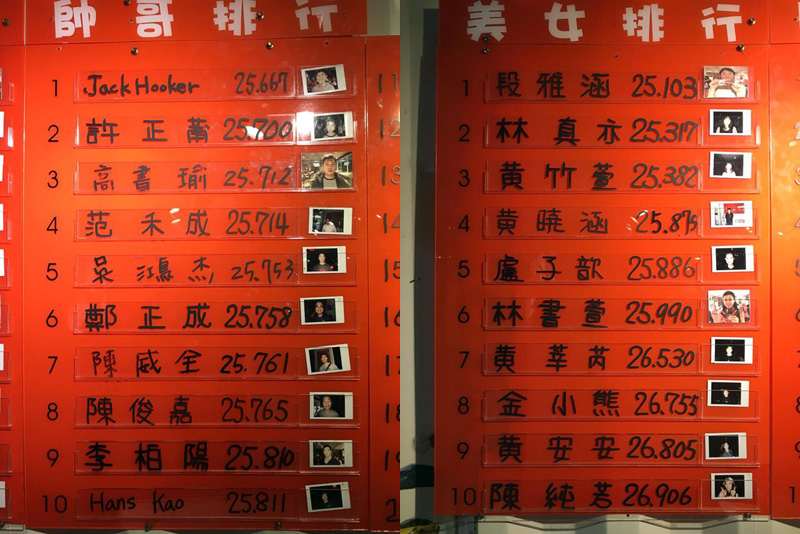 帥哥排行
1 Jack Hooker 25.667
2 許正喬 25.700
3 高書瑜 25.712
4 范禾成 25.714
5 吳鴻杰 25.753
6 鄭正成 25.758
7 陳威全 25.761
8 陳俊嘉 25.765
9 李柏陽 25.810
10 Hans Kao 25.811
11
12
13
14
15
美女排行
1 段雅涵 25.103
2 林真亦 25.317
3 黃竹萱 25.382
4 黃曉涵 25.875
5 盧子歆 25.886
6 林書萱 25.990
7 黃莘芮 26.530
8 金小熊 26.755
9 黃安安 26.805
10 陳純若 26.906